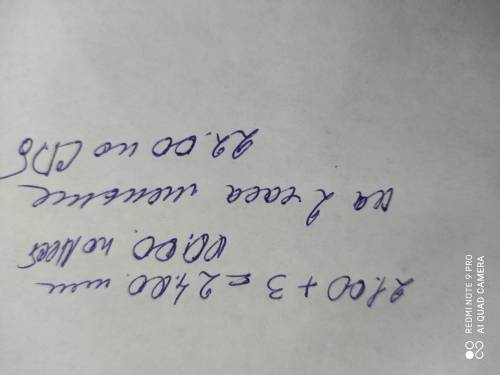 21.00 + 3 = 24.00 или
00.00 по
на 2 часа меньше
22.00 по СПб
REDMI NOTE 9 PRO
AI QUAD CAMERA